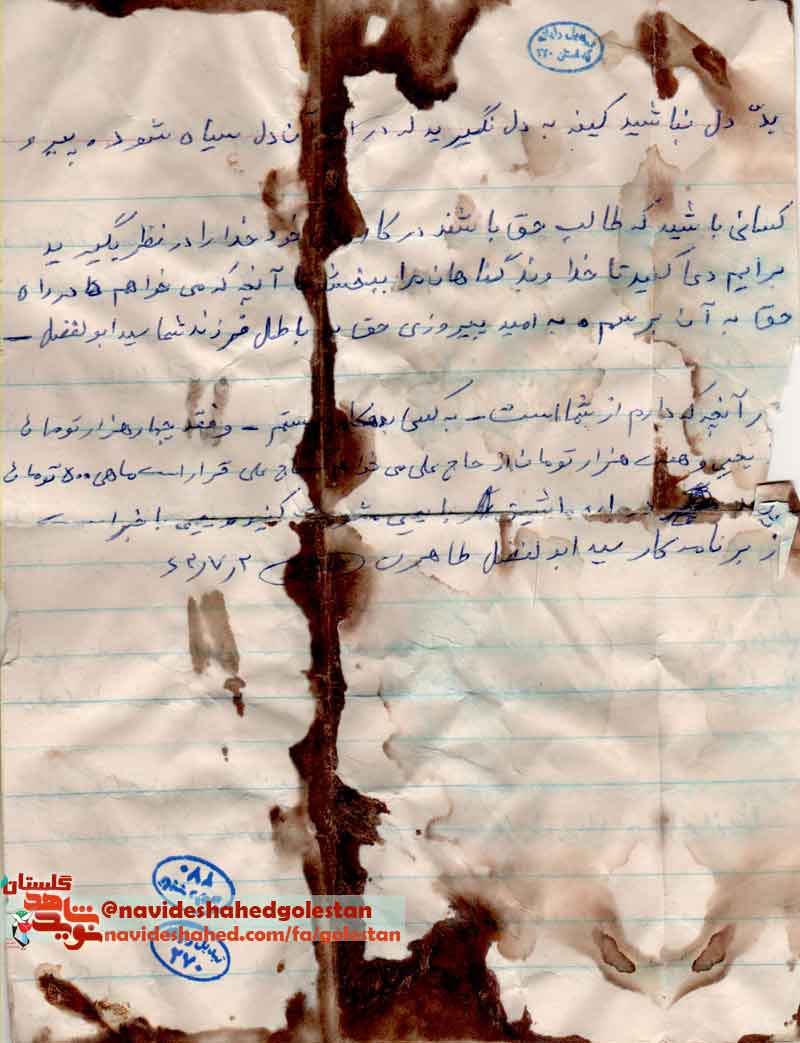 بدّ دل نباشید کینه به دل نگیرید که در آن دل سیاه شود ه پیرو
کسانی باشید که طالب حق باشند در کار خود خدا را در نظر بگیرید
برایم دعا کنید تا خداوند گناهان مرا ببخش تا آنچه که می خواهم در راه
حق به آن برسم ه به امید پیروزی حق بر باطل فرزند شما سید ابولفضل –
ر آنچه که دارم از شما است – به کسی بدهکار نیستم – و فقد چهار هزار تومان
یحیی و هزار تومان از حاج علی می حاج علی قرار است ماهی ۵۰۰ تومان
باشید با یحیی کنید یحیی با خبر است
از برنامه کار سید ابولفضل طاهری ۶۳٫۷٫۲
۰۸۸
۲۷۰
گلستان
نوید شاهد
@navideshahedgolestan
navideshahed.com/fa/golestan